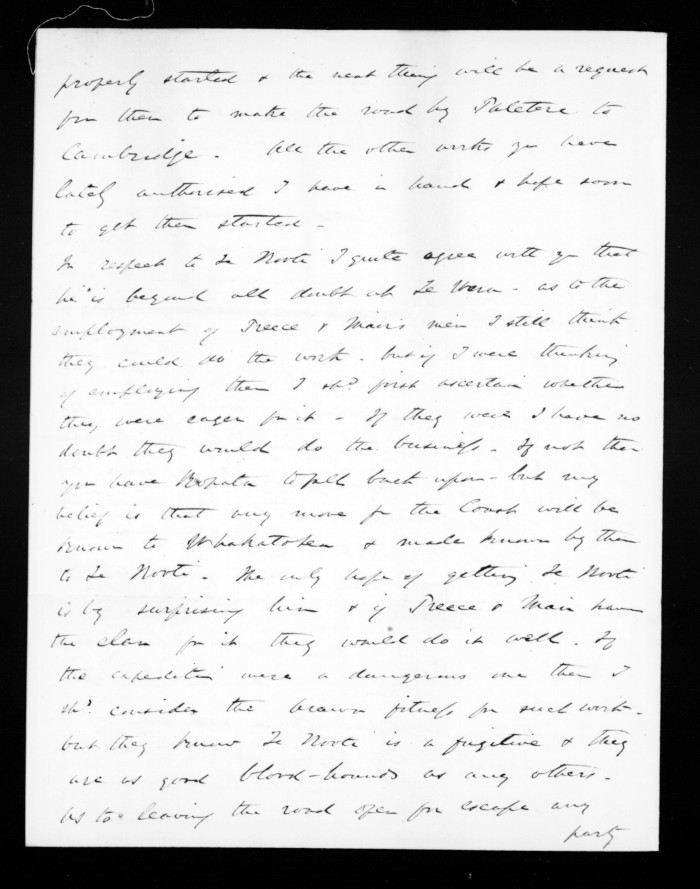 properly started & the next thing will be a request
from them to make the road by Patetere to
Cambridge. All the other works you have
lately authorised I have in hand & hope soon
to get them started -
In respect to Te Kooti I quite agree with you that
he is beyond all doubt at Te Wera - as to the
employment of Preece & Mair's men I still think
they could do the work - but if I were thinking
of employing them I shd. first ascertain whether
they were eager for it - If they were I have no
doubt they would do the business. If not then
you have Ropata to fall back upon - but my
belief is that any move fm the Coast will be
known to Whakatohea & made known by them
to Te Kooti. The only hope of getting Te Kooti
is by surprising him & if Preece & Mair have
the elan for it they would do it well. If
the expedition were a dangerous one then I
shd. consider the fitness for such work -
but they know Te Kooti is a fugitive & they
are as good blood-hounds as any others.
As to leaving the road open for escape any
party